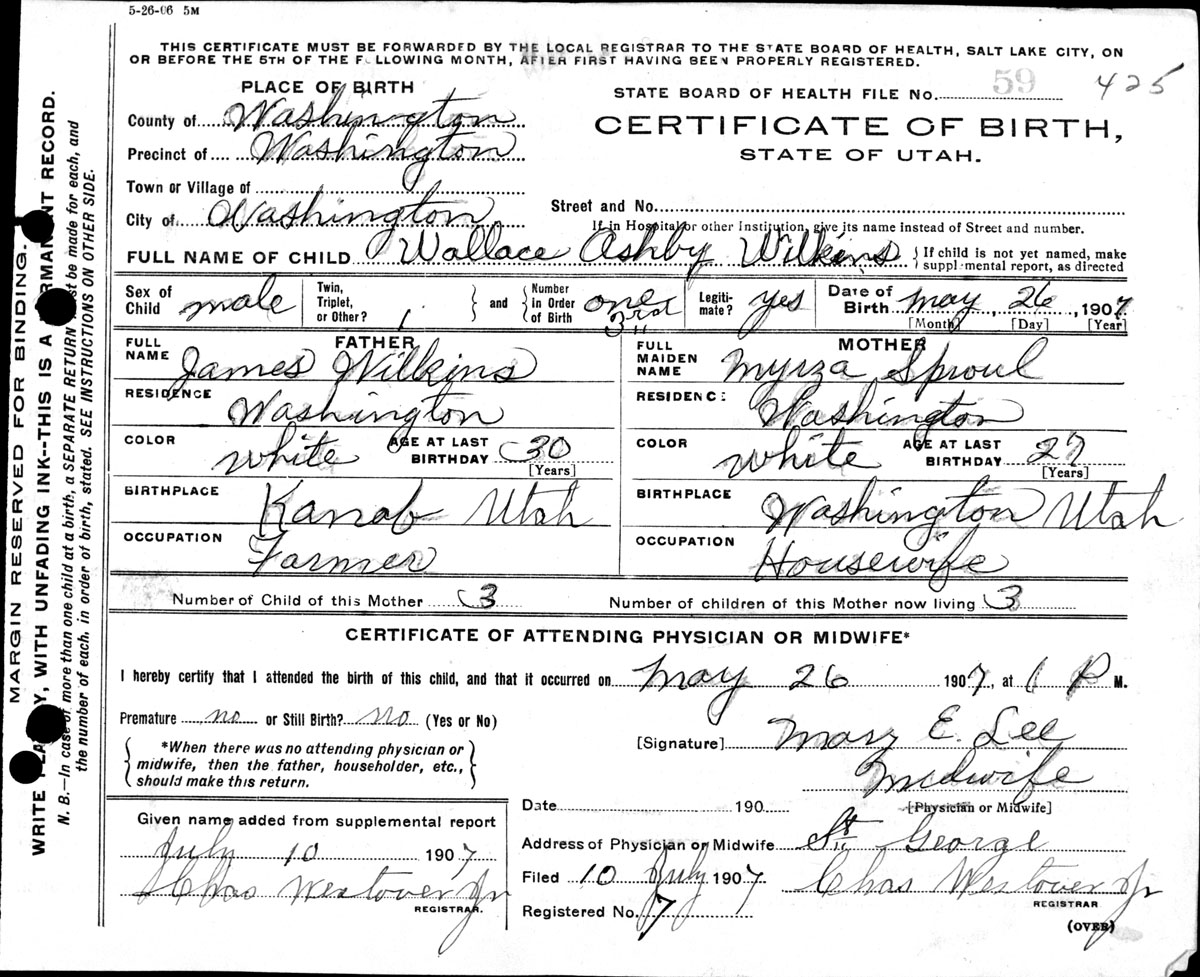 5-26-06 5M
THIS CERTIFICATE MUST BE FORWARDED BY THE LOCAL REGISTRAR TO THE STATE BOARD OF HEALTH, SALT LAKE CITY, ON
OR BEFORE THE 5TH OF THE FOLLOWING MONTH, AFTER FIRST HAVING BEEN PROPERLY REGISTERED.
PLACE OF BIRTH
STATE BOARD OF HEALTH FILE No. 59 425
County of Washington
CERTIFICATE OF BIRTH,
Precinct of Washington
STATE OF UTAH.
Town or Village of
City of Washington
Street and No.
If in Hospital or other Institution, give its name instead of Street and number.
FULL NAME OF CHILD Wallace Ashby Wilkins { If child is not yet named, make
supplemental report, as directed
Sex of Child male Twin, Triplet, or Other? 1 and Number in Order of Birth one 3rd Legiti-mate? yes Date of Birth May 26, 1907
[Month] [Day] [Year]
FATHER
FULL NAME James Wilkins
RESIDENCE Washington
COLOR white AGE AT LAST BIRTHDAY 30 [Years]
BIRTHPLACE Kanab Utah
OCCUPATION Farmer
MOTHER
FULL MAIDEN NAME Myrza Sproul
RESIDENCE Washington
COLOR white AGE AT LAST BIRTHDAY 27 [Years]
BIRTHPLACE Washington Utah
OCCUPATION Housewife
Number of Child of this Mother 3 Number of children of this Mother now living 3
CERTIFICATE OF ATTENDING PHYSICIAN OR MIDWIFE*
I hereby certify that I attended the birth of this child, and that it occurred on May 26 1907, at 1 P M.
Premature no or Still Birth? no (Yes or No)
{ *When there was no attending physician or
midwife, then the father, householder, etc.,
should make this return. }
[Signature] Mary E. Lee
Midwife
Date 190 [Physician or Midwife]
Given name added from supplemental report
July 10 1907
Chas Westover Jr
REGISTRAR.
Address of Physician or Midwife St George
Filed 10 July 1907 Chas Westover Jr
REGISTRAR
Registered No. 7
(OVER)
MARGIN RESERVED FOR BINDING.
WRITE PLAINLY, WITH UNFADING INK--THIS IS A PERMANENT RECORD.
N. B.—In case of more than one child at a birth, a SEPARATE RETURN must be made for each, and
the number of each, in order of birth, stated. SEE INSTRUCTIONS ON OTHER SIDE.